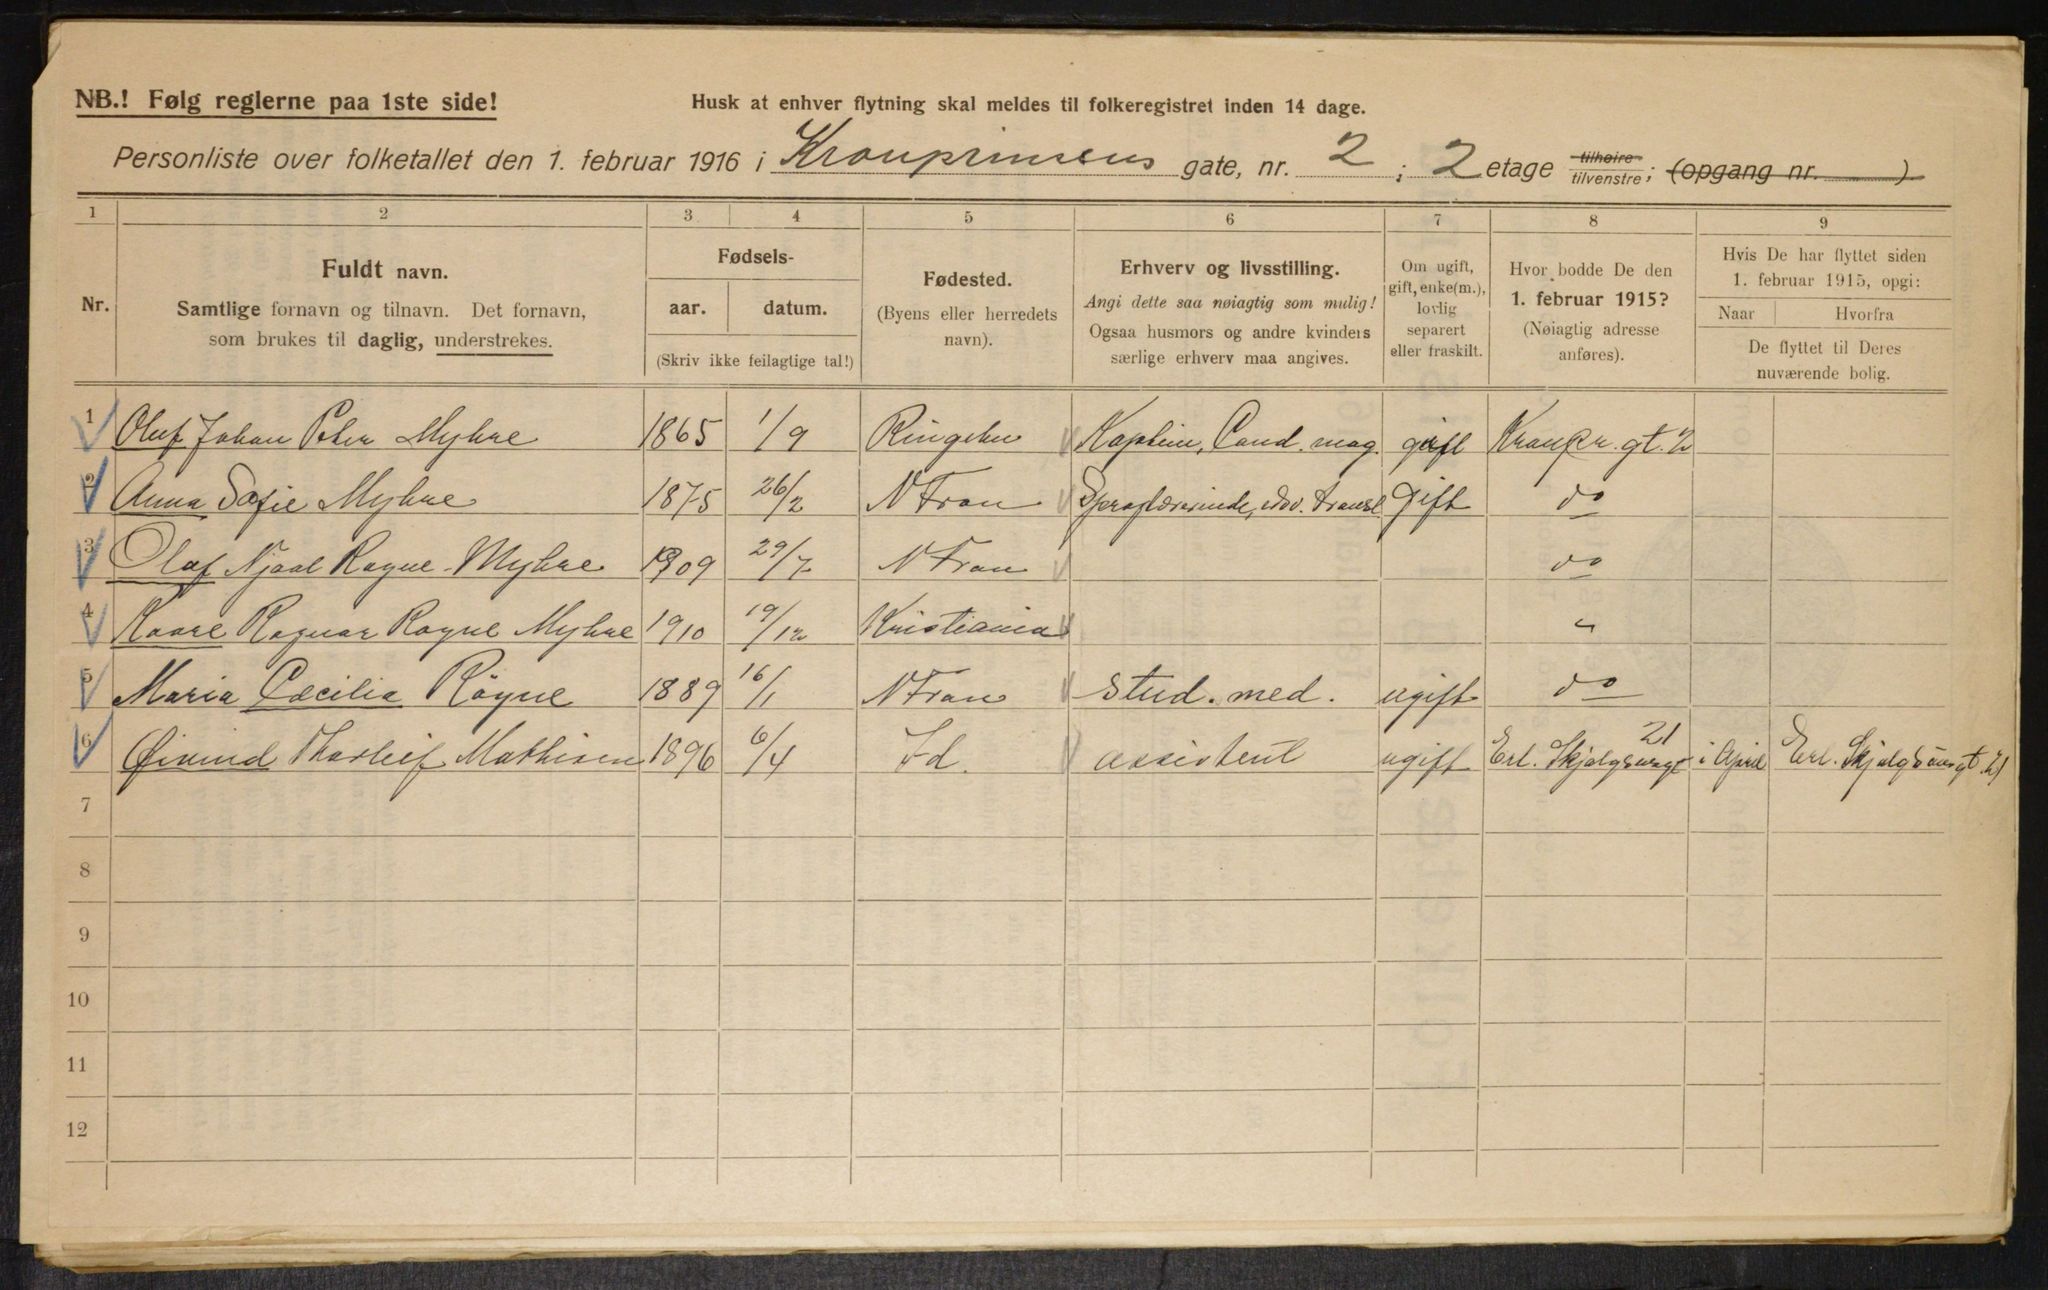 NB.! Følg reglerne paa 1ste side!
Husk at enhver flytning skal meldes til folkeregistret inden 14 dage.
Personliste over folketallet den 1. februar 1916 i Kronprinsens gate, nr. 2 ; 2 etage tilhøire tilvenstre ; (opgang nr. )
1 2 3 4 5 6 7 8 9
Nr.
Fuldt navn.
Samtlige fornavn og tilnavn. Det fornavn,
som brukes til daglig, understrekes.
Fødsels-
aar. datum.
(Skriv ikke feilagtige tal!)
Fødested.
(Byens eller herredets
navn).
Erhverv og livsstilling.
Angi dette saa nøiagtig som mulig!
Ogsaa husmors og andre kvinders
særlige erhverv maa angives.
Om ugift,
gift, enke(m.),
lovlig
separert
eller fraskilt.
Hvor bodde De den
1. februar 1915?
(Nøiagtig adresse
anføres).
Hvis De har flyttet siden
1. februar 1915, opgi:
Naar Hvorfra
De flyttet til Deres
nuværende bolig.
1 Oluf Johan Peter Myhre 1865 1/9 Ringebu Kaptein, Cand. mag. gift Kronpr. gt. 2
2 Anna Sofie Myhre 1875 26/2 N Fron Sproglærerinde, edsv. transl gift do
3 Olaf Njaal Røgne Myhre 1909 29/7 N Fron do
4 Kaare Ragnar Røgne Myhre 1910 19/12 Kristiania "
5 Maria Cæcilia Røgne 1889 16/1 N Fron stud. med. ugift do
6 Øivind Thorleif Mathisen 1896 6/4 Id. assistent ugift Erl. Skjalgsønsgt 21 i April Erl. Skjalgsønsgt. 21
7
8
9
10
11
12